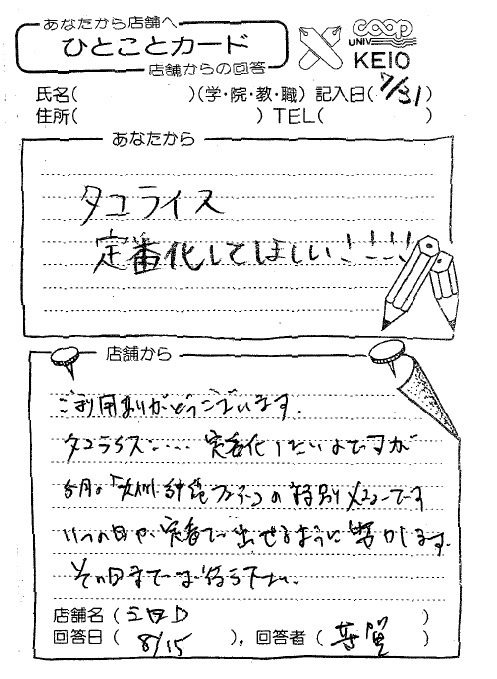 あなたから店舗へ
ひとことカード
店舗からの回答
UNIV. coop
KEIO
氏名( )(学・院・教・職) 記入日( 7/31 )
住所( ) TEL( )
あなたから
タコライス
定番化してほしい!!!!
店舗から
ご利用ありがとうございます.
タコライス.... 定番化したいよですが
の特別メニューです
いつの日か、定番で出せるように努力します.
その日までお待ち下さい.
店舗名( )
回答日( 8/15 ), 回答者( )